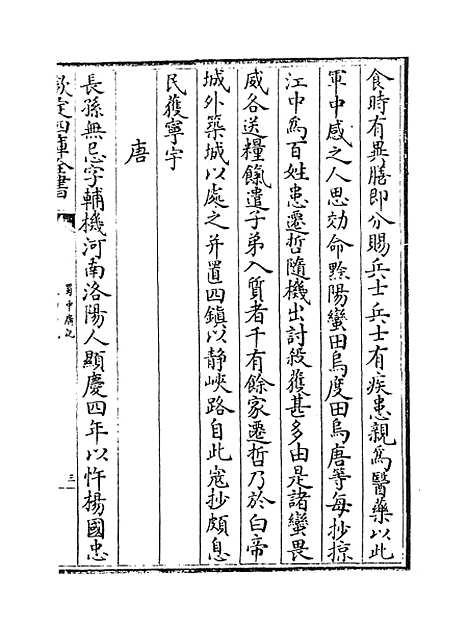 食時有異膳即分賜兵士兵士有疾患親為醫藥以此
軍中感之人思効命黔陽蠻田烏度田烏唐等每抄掠
江中為百姓患遷哲隨機出討殺獲甚多由是諸蠻畏
威各送糧餼遣子弟入質者千有餘家遷哲乃於白帝
城外築城以處之并置四鎮以静峽路自此寇抄頗息
民獲寧宇
唐
長孫無忌字輔機河南洛陽人顯慶四年以忤楊國忠
欽定四庫全書
蜀中廣記
三